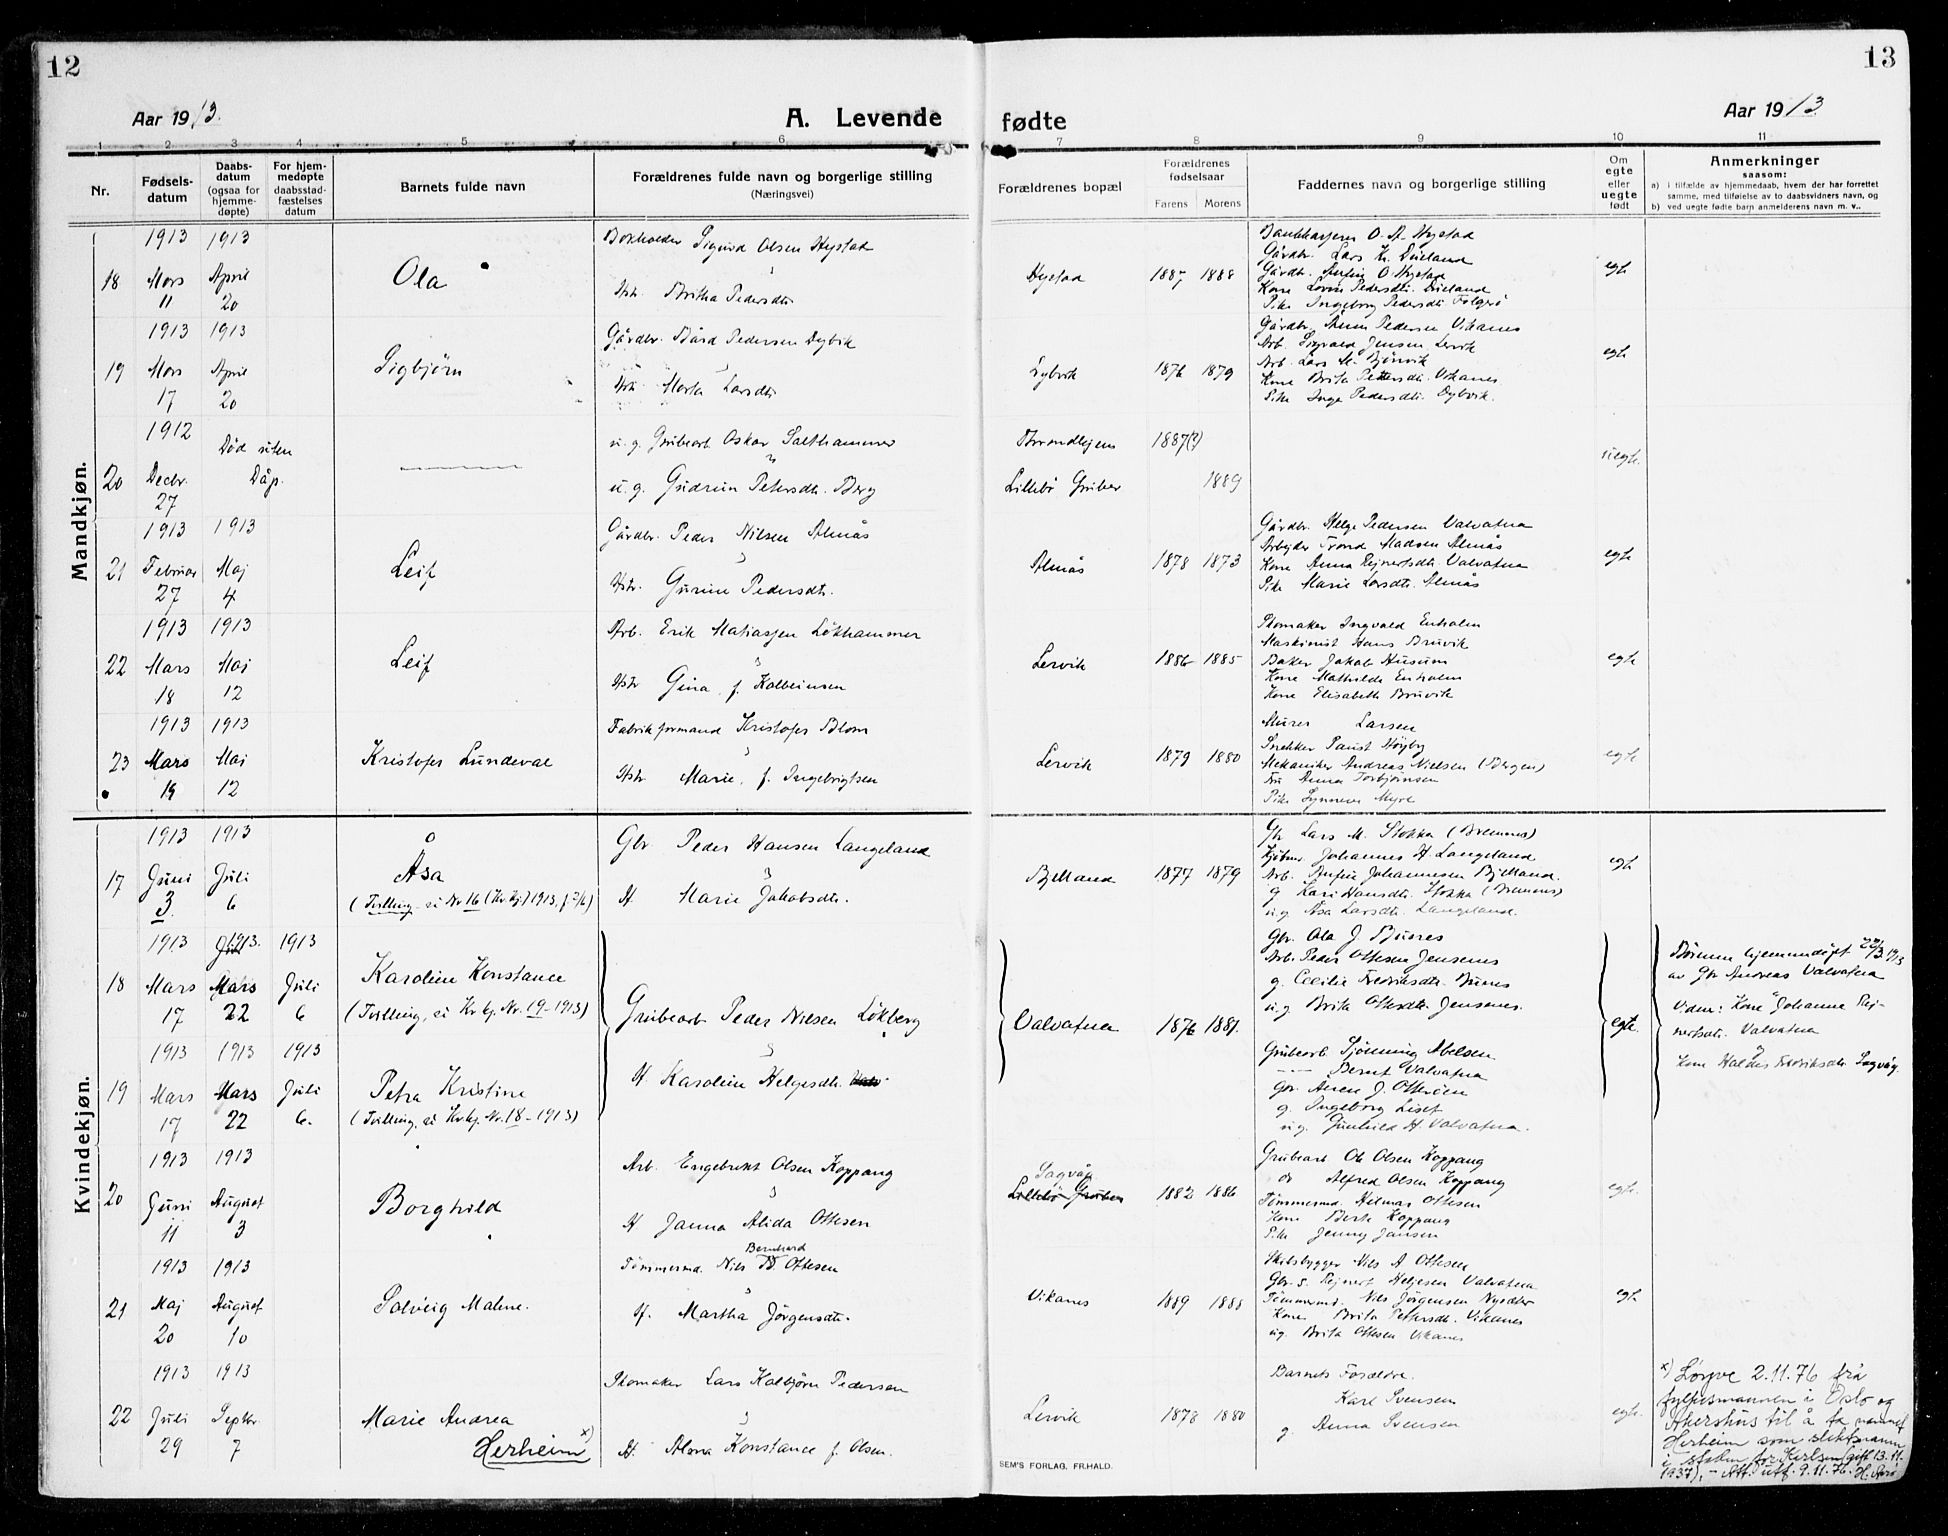 12
Aar 1913.
A. Levende
1 2 3 4 5 6
Nr.
Fødsels-
datum
Daabs-
datum
(ogsaa for
hjemme-
døpte)
For hjem-
medøpte
daabsstad-
fæstelses
datum
Barnets fulde navn
Forældrenes fulde navn og borgerlige stilling
(Næringsvei)
Mandkjøn.
18
1913
Mars
11
1913
April
20
Ola
Bokholder Sigurd Olsen Hystad
Hstr. Britha Pedersdtr
19
1913
Mars
17
1913
April
20
Sigbjörn
Gårdbr. Bård Pedersen Dybvik
Hstr. Marta Larsdtr
20
1912
Decbr.
27
Död uten
Dåp.
u. g. Grubearb Oskar Salthammer
u. g. Gudrun Petersdtr. Berg
21
1913
Februar
27
1913
Maj
4
Leif
Gårdbr. Peder Nilsen Almås
Hstr. Gurine Pedersdtr.
22
1913
Mars
18
1913
Maj
12
Leif
Arb. Erik Matiassen Lökhammer
Hstr Gina, f. Kolbeinsen
23
1913
Mars
1913
Maj
12
Kristofer Lundeval
Fabrikformand Kristofer Blom
Hstr Marie, f. Ingebrigtsen
Kvindekjøn.
17
1913
Juni
3.
1913
Juli
6
Åsa
(Tvilling, se Nr 16 (Kv.kj.) 1913, f. 2/6)
Gbr Peder Hansen Langeland
H. Marie Jakobsdtr.
18
1913
Mars
17
1913.
Mars
22
1913
Juli
6
Karoline Konstance
(Tvilling, se Kv.kj. Nr. 19 - 1913)
Grubearb Peder Nilsen Lökberg
H. Karoline Helgesdtr.
19
1913
Mars
17
1913
Mars
22
1913
Juli
6.
Petra Kristine
(Tvilling, se Kv.kj. Nr. 18 - 1913)
20
1913
Juni
11
1913
August
3
Borghild
Arb. Engebrikt Olsen Koppang
H Janna Alida Ottesen
21
1913
Maj
20
1913
August
10
Solveig Malene.
Bernhard
Tömmermd. Nils B. Ottesen
H. Martha Jörgensdtr.
22
1913
Juli
29
1913
Septbr.
7
Marie Andrea
Herheim x)
Skomaker Lars Kolbjörn Pedersen
H. Alvra Konstance f. Olsen.
13
Aar 1913
fødte
7 8 9 10 11
Forældrenes bopæl
Forældrenes
fødselsaar
Farens Morens
Faddernes navn og borgerlige stilling
Om
egte
eller
uegte
født
Anmerkninger
saasom:
a) i tilfælde av hjemmedaab, hvem der har forrettet
samme, med tilføielse av to daabsvidners navn, og
b) ved uegte fødte barn anmelderens navn m. v..
Hystad 1887 1888
Bankkasserer O. A. Hystad
Gårdbr. Lars Kr. Dueland
Gårdb. Anfin O. Hystad
Kone Lovise Pedersdtr. Dueland
Pike Ingeborg Pedersdtr. Folgerö
egte
Dybvik 1876 1879
Gårdbr. Ånen Pedersen Vikanes
Arb. Sigvald Jensen Lervik
Arb. Lars M. Björvik
Kone Brita Petersdtr. Vikanes.
Pike Inga Pedersdtr. Dybvik.
egte
Trondhjem 1887(?)
Lillebö Gruber 1889
uegte.
Almås 1878 1873
Gårdbr. Helge Pedersen Valvatna
Arbejder Trond Madsen Almås
Kone Anna Rejnertsdtr. Valvatna
Pike Marie Larsdtr. Almås
egte
Lervik 1886 1885
Skomaker Ingvald Enholm
Maskinist Hans Bruvik
Baker Jakob Husum
Kone Mathilde Enholm
Kone Elisabeth Bruvik
egte
Lervik 1879 1880
Murer Larsen
Snekker Paust Höyby
Mekaniker Andreas Nielsen (Bergen)
Fru Anna Torbjörnsen
Pike Synneve Myre
egte
Bjelland 1877 1879
Gbr Lars M. Stokka (Bremnes)
Kjöbm. Johannes H. Langeland
Arb. Anfin Johannesen Bjelland.
g Kari Hansdtr. Stokka (Bremnes)
u.g Åsa Larsdtr. Langeland.
egte
Valvatna 1876 1881.
Gbr. Ola J. Bunes
Arb. Peder Ottesen Jensenes
g. Cecilie Fredriksdtr. Bunes
u.g. Brita Ottesdtr. Jensenes.
Grubearb Tjönning Abelsen
--- Bernt Valvatna
Gbr. Anen J. Otteröen
g. Ingeborg Liset
u.g. Gunhild H. Valvatna.
egte.
Börnene hjemmedöpt 22/3 1913
av Gbr Andreas Valvatna
Vidner: Kone Johanne Rej-
nertsdtr. Valvatna
Kone Haldis Fredriksdtr. Sagvåg.
Sagvåg
Lillebö Gruber 1882 1886
Grubearb Ole Olsen Koppang
do Alfred Olsen Koppang
Tömmermd Hilmar Ottesen
Kone Berte Koppang
Pike Jenny Jansen
egte.
Vikanes 1889 1888
Skibsbygger Nils A Ottesen
Gbr. s. Rejnert Helgesen Valvatna
Tömmermd. Nils Jörgensen Nysæter
Kone Brita Petersdtr. Vikanes
u.g. Brita Ottesen Vikanes
egte
Lervik 1878 1880
Barnets Forældre.
Karl Svensen
g. Anna Svensen
egte.
x) Löyve 2.11.76 frå
fylkesmannen i Oslo og
Akershus til å ta namnet
Herheim som slektsnamn
i staden for Karlsen (gift 13.11.
1937). - Att. utf. 9.11.76. H.
SEM'S FORLAG, FR.HALD.